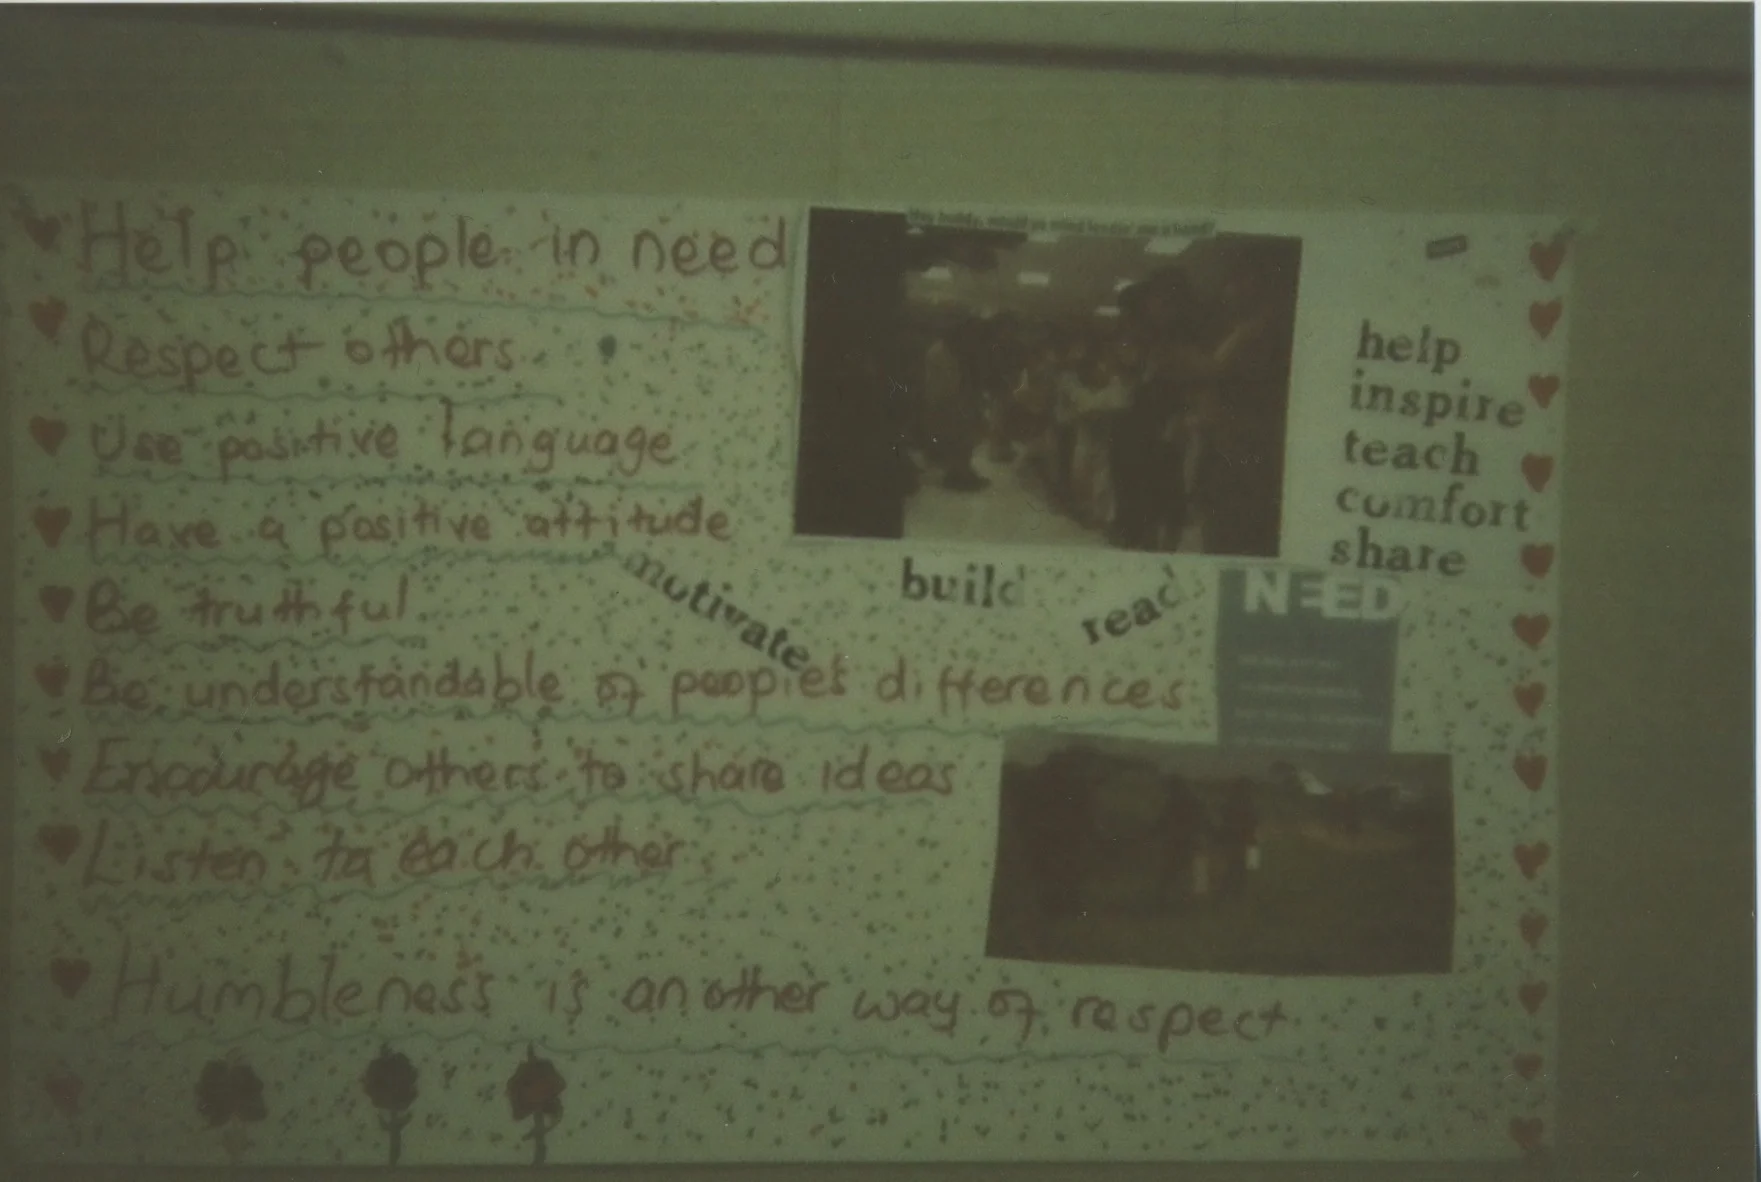 Help people in need
Respect others
Use positive language
Have a positive attitude
Be truthful
Be understandable of people's differences
Encourage others to share ideas
Listen to each other
Humbleness is another way of respect
motivate
build
read
help
inspire
teach
comfort
share
NEED